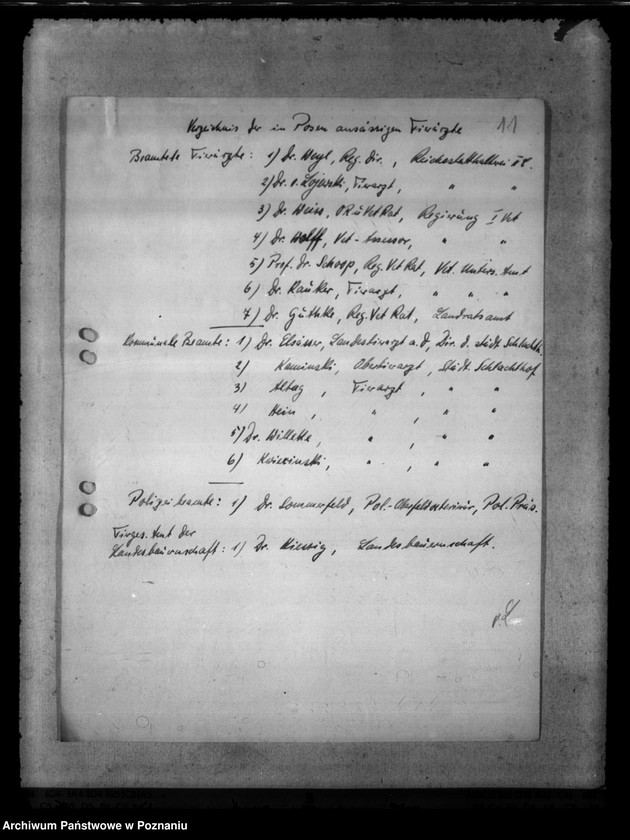 Verzeichnis der in Posen ansässigen Tierärzte 11
Beamtete Tierärzte: 1) Dr. Weyl, Reg. Dir., Reichsstatthalterei
2) Dr. v. Lojewski, Tierarzt, " "
3) Dr. Weiss, ORuVetRat, Regierung I Vet
4) Dr. Wolff, Vet-Assessor, " "
5) Prof. Dr. Schoop, Reg. Vet Rat, Vet. Unters. Amt
6) Dr. Rauker, Tierarzt, " " "
7) Dr. Güthke, Reg. Vet Rat, Landratsamt
Kommunale Beamte: 1) Dr. Elsässer, Landestierarzt a.d, Dir. d. städt. Schlachth.
2) Kaminski, Obertierarzt, Städt. Schlachthof
3) , Tierarzt, " "
4) Hein, " , " "
5) Dr. Willeke, " , " "
6) , " , " "
Polizeibeamte: 1) Dr. Sommerfeld, Pol.-Oberfeldveterinär, Pol. Präs.
Tierges. Amt der
Landesbauernschaft: 1) Dr. , Landesbauernschaft.
Archiwum Państwowe w Poznaniu